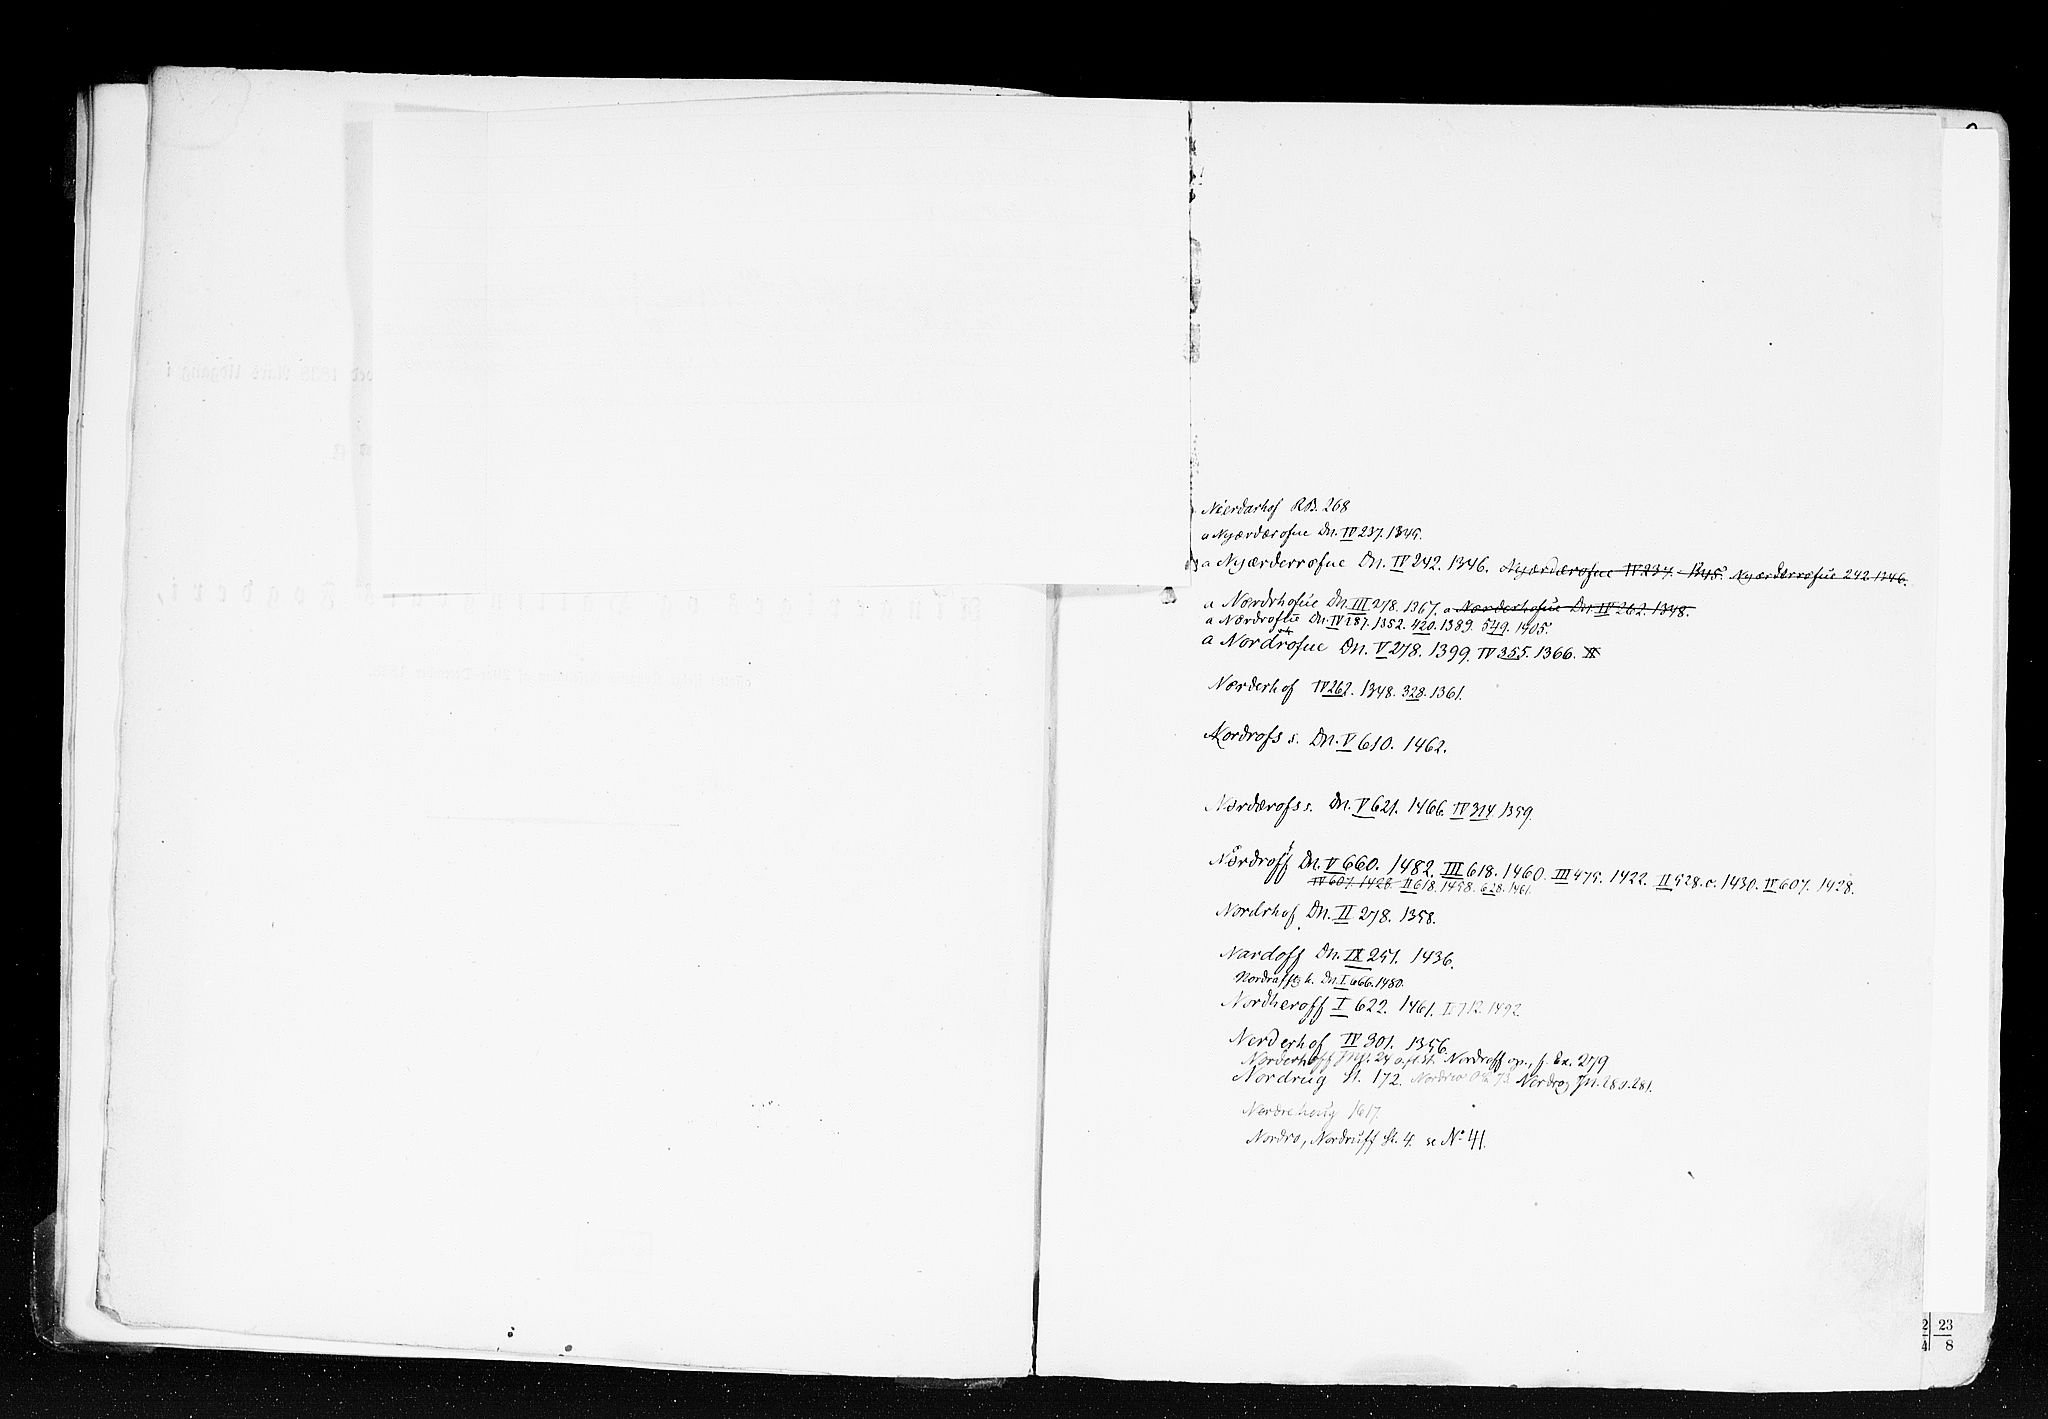 Nierdarhof RB. 268
a Nyærdærofue Dn. IV 237. 1345.
a Nyærderrofue Dn. IV 242. 1346. Nyærdærofue IV 237. 1345. Nyærdærrofue 242 1346.
a Nærdrhofue Dn. III 278. 1367. a Nærderhofue Dn. IV 262. 1348.
a Nærdrofue Dn. IV 287. 1352. 420. 1389. 549. 1405.
a Nordrofue Dn. V 278. 1399. IV 355. 1366.
Nærderhof IV 262. 1348. 328. 1361.
Nordrofs s. Dn. V 610. 1462.
Nordærofs s. Dn. V 621. 1466. IV 314. 1359.
Nordroff Dn. V 660. 1482. III 618. 1460. III 475. 1422. II 528. c. 1430. IV 607. 1428.
IV 607. 1428 II 618. 1458. 628. 1461.
Nordrhof Dn. II 278. 1358.
Nardoff Dn. IX 251. 1436.
Nordraffs h. Dn. I 666. 1480.
Nordheroff I 622. 1461. I 712. 1492
Nerderhof IV 301. 1356
Norderhoff Nordroff op., f. Ex. 279
Nordrug St. 172. Nordrog Jn. 280. 281.
Nordrehoug 1617.
Nordro, Nordruff St. 4. se No 41.
2 | 23
4 | 8